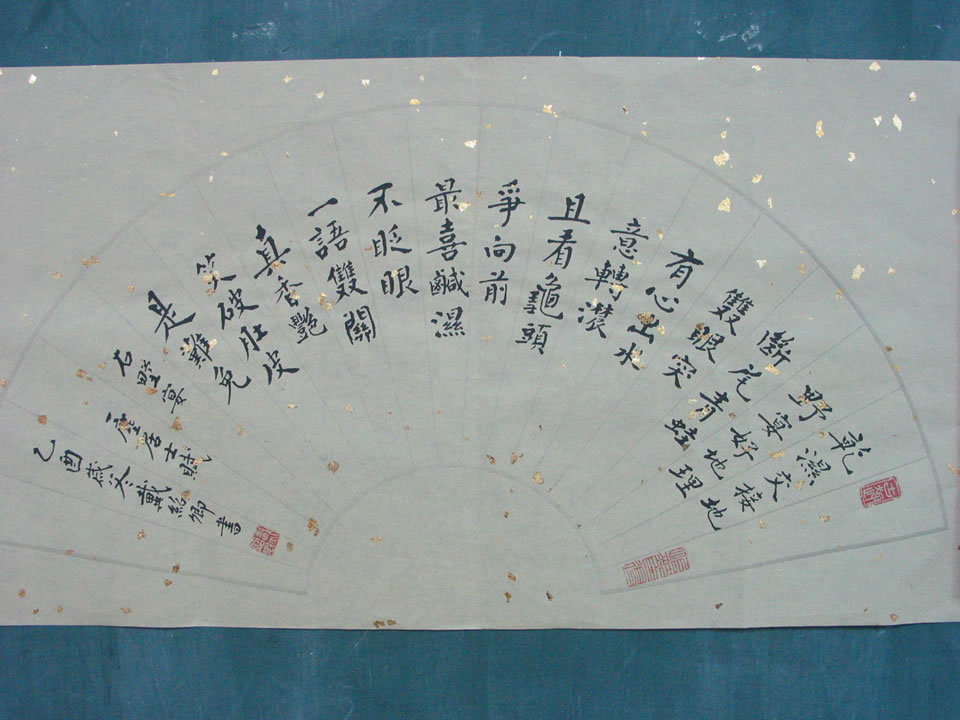 乾濕交接地
野宴好地理
斷尾青蛙
雙眼突
有心出水
意轉濃
且看龜頭
爭向前
最喜鹹濕
不眨眼
一語雙關
真香艷
笑破肚皮
是難免
石墅宴
居士賦
乙酉歲冬戴紹卿書